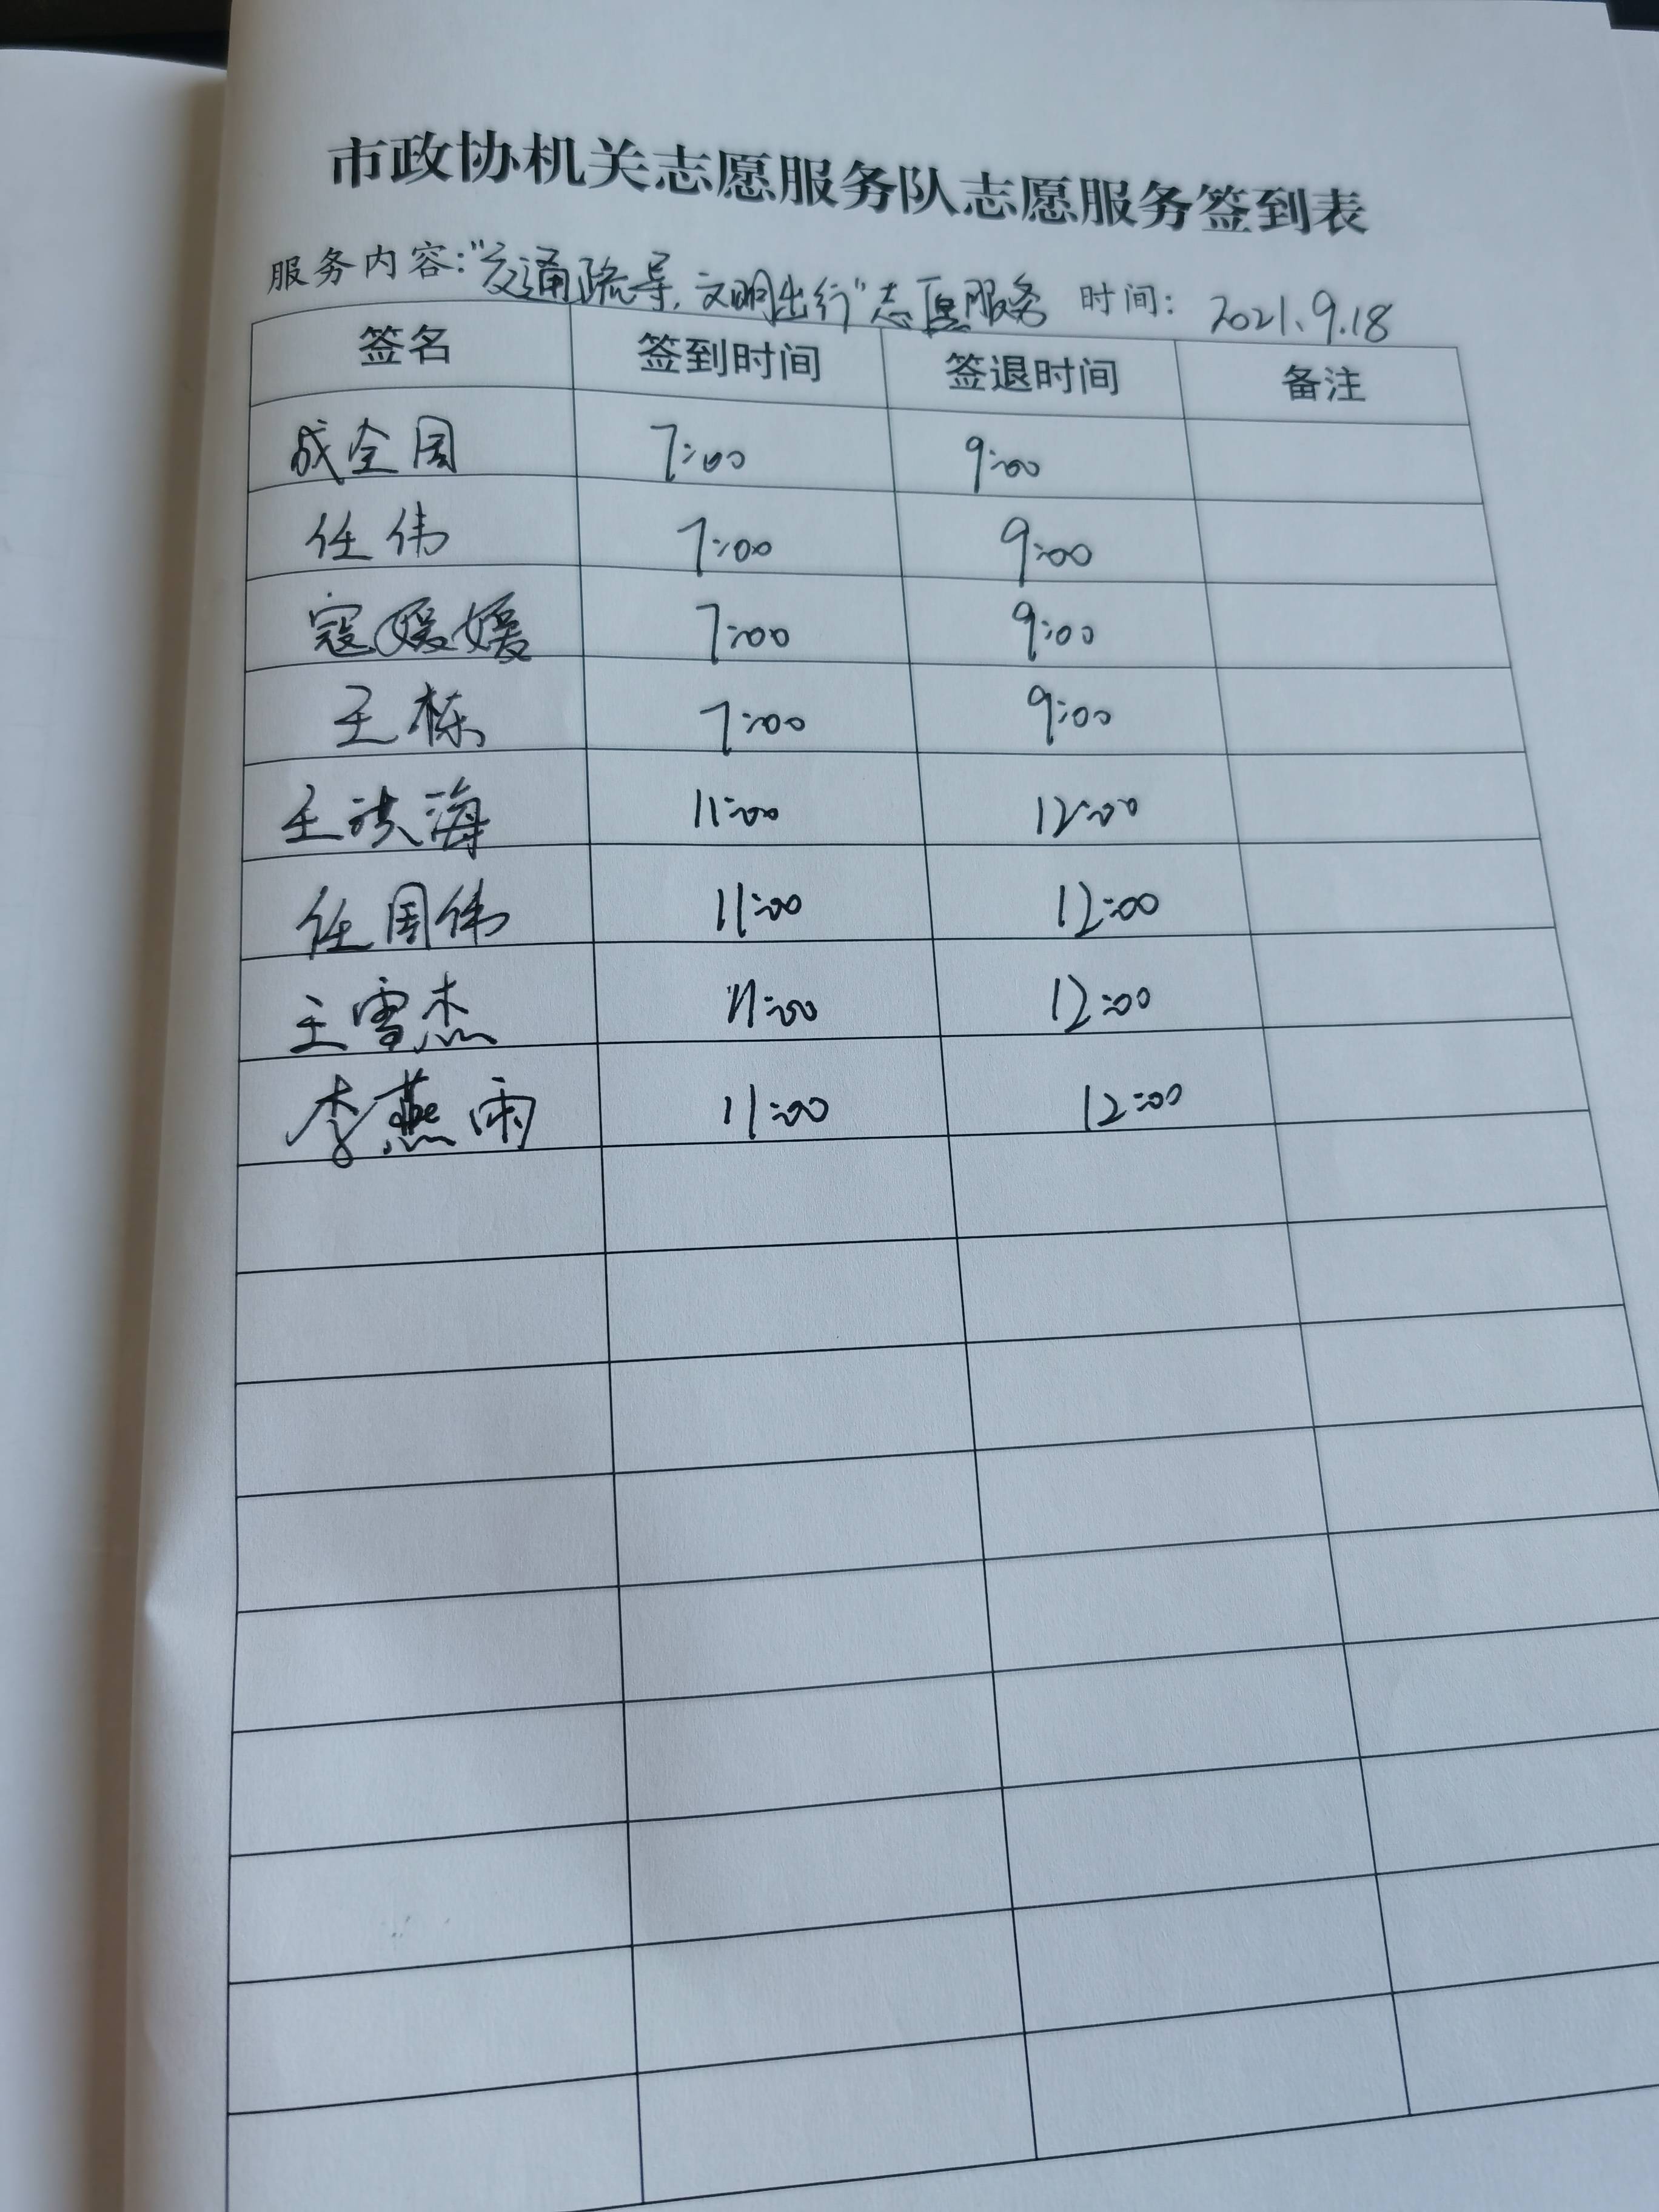 市政协机关志愿服务队志愿服务签到表
服务内容："交通疏导，文明出行"志愿服务 时间：2021.9.18
签名 签到时间 签退时间 备注
成全国 7:00 9:00
任伟 7:00 9:00
寇媛媛 7:00 9:00
王栋 7:00 9:00
王洪海 11:00 12:00
任国伟 11:00 12:00
王雪杰 11:00 12:00
李燕雨 11:00 12:00